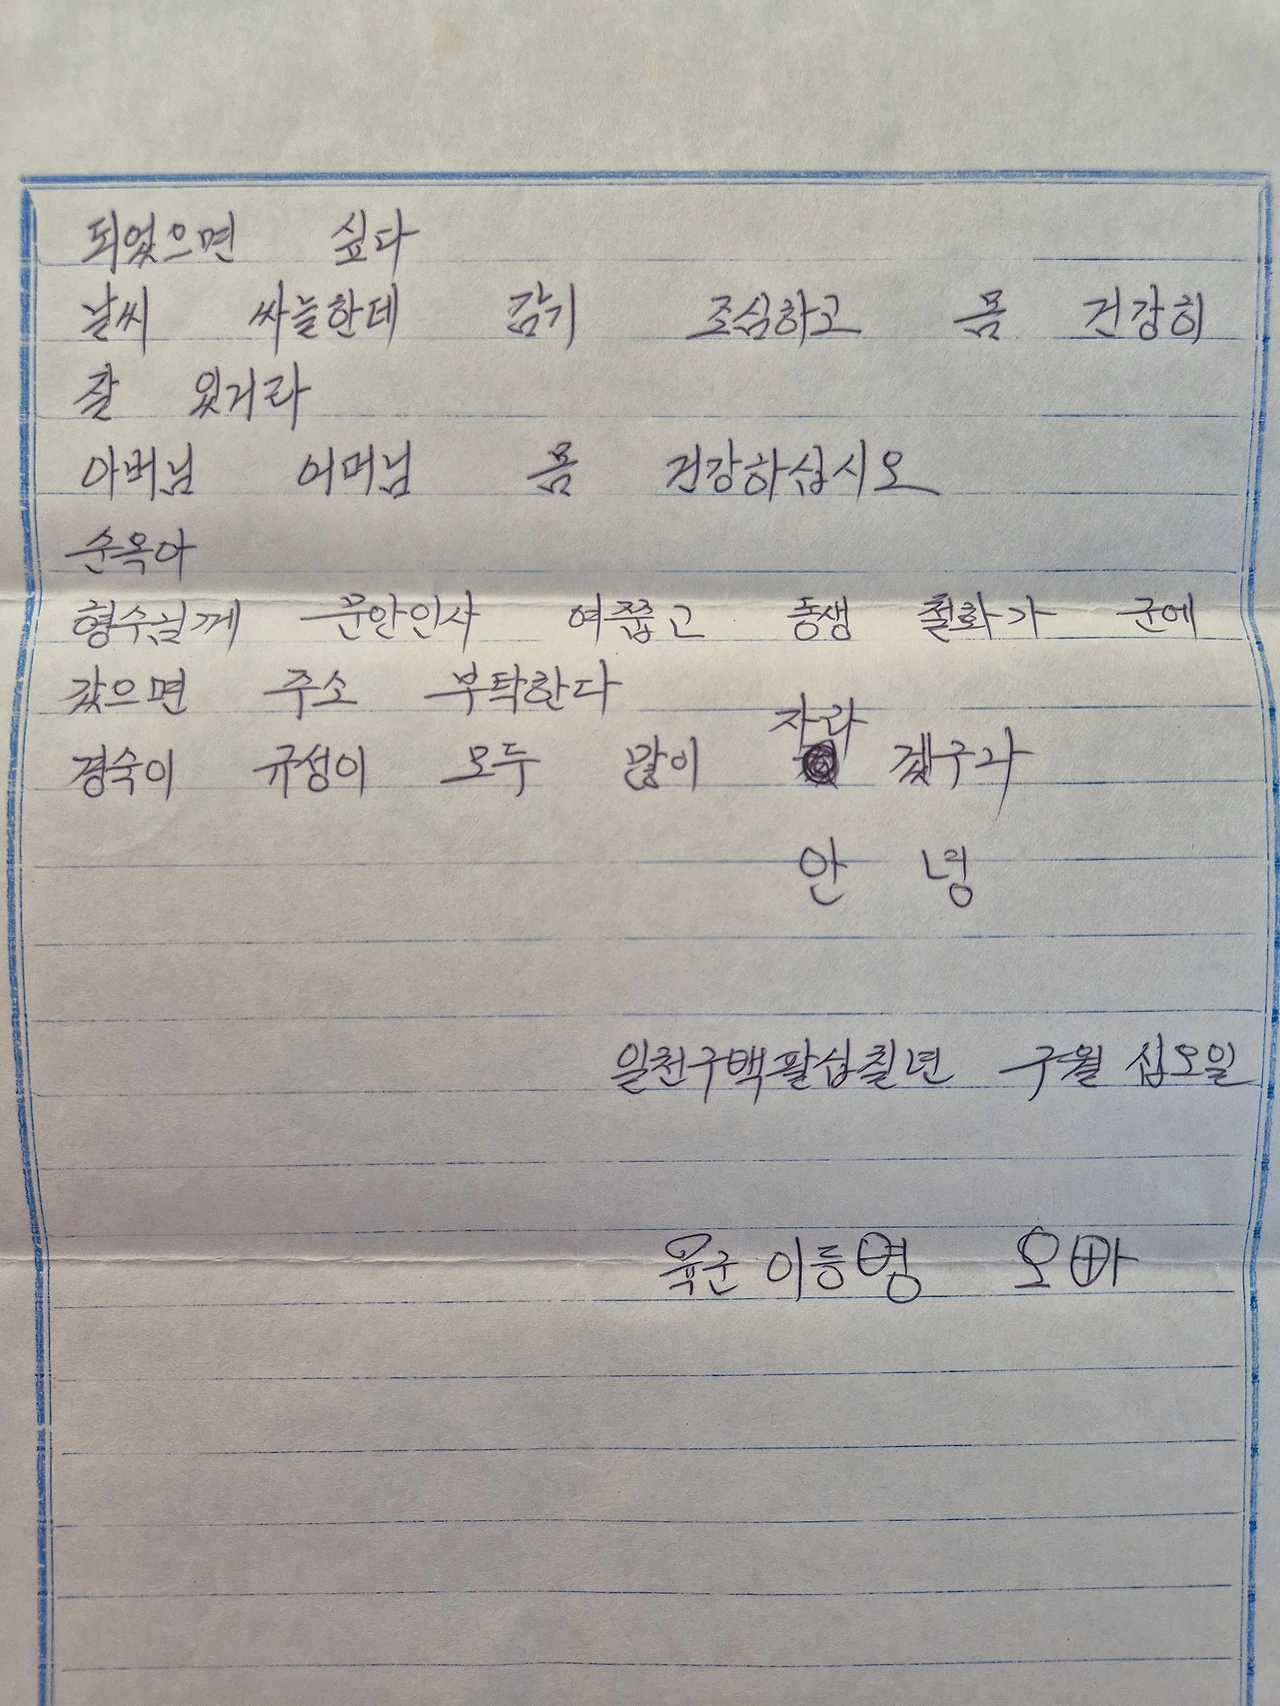 되었으면 싶다
날씨 싸늘한데 감기 조심하고 몸 건강히
잘 있거라
아버님 어머님 몸 건강하십시오
순옥아
형수님께 문안인사 여쭙고 동생 철화가 군에
갔으면 주소 부탁한다
경숙이 규성이 모두 많이 자라 겠구나
안 녕
일천구백팔십칠년 구월 십오일
육군 이등병 오빠